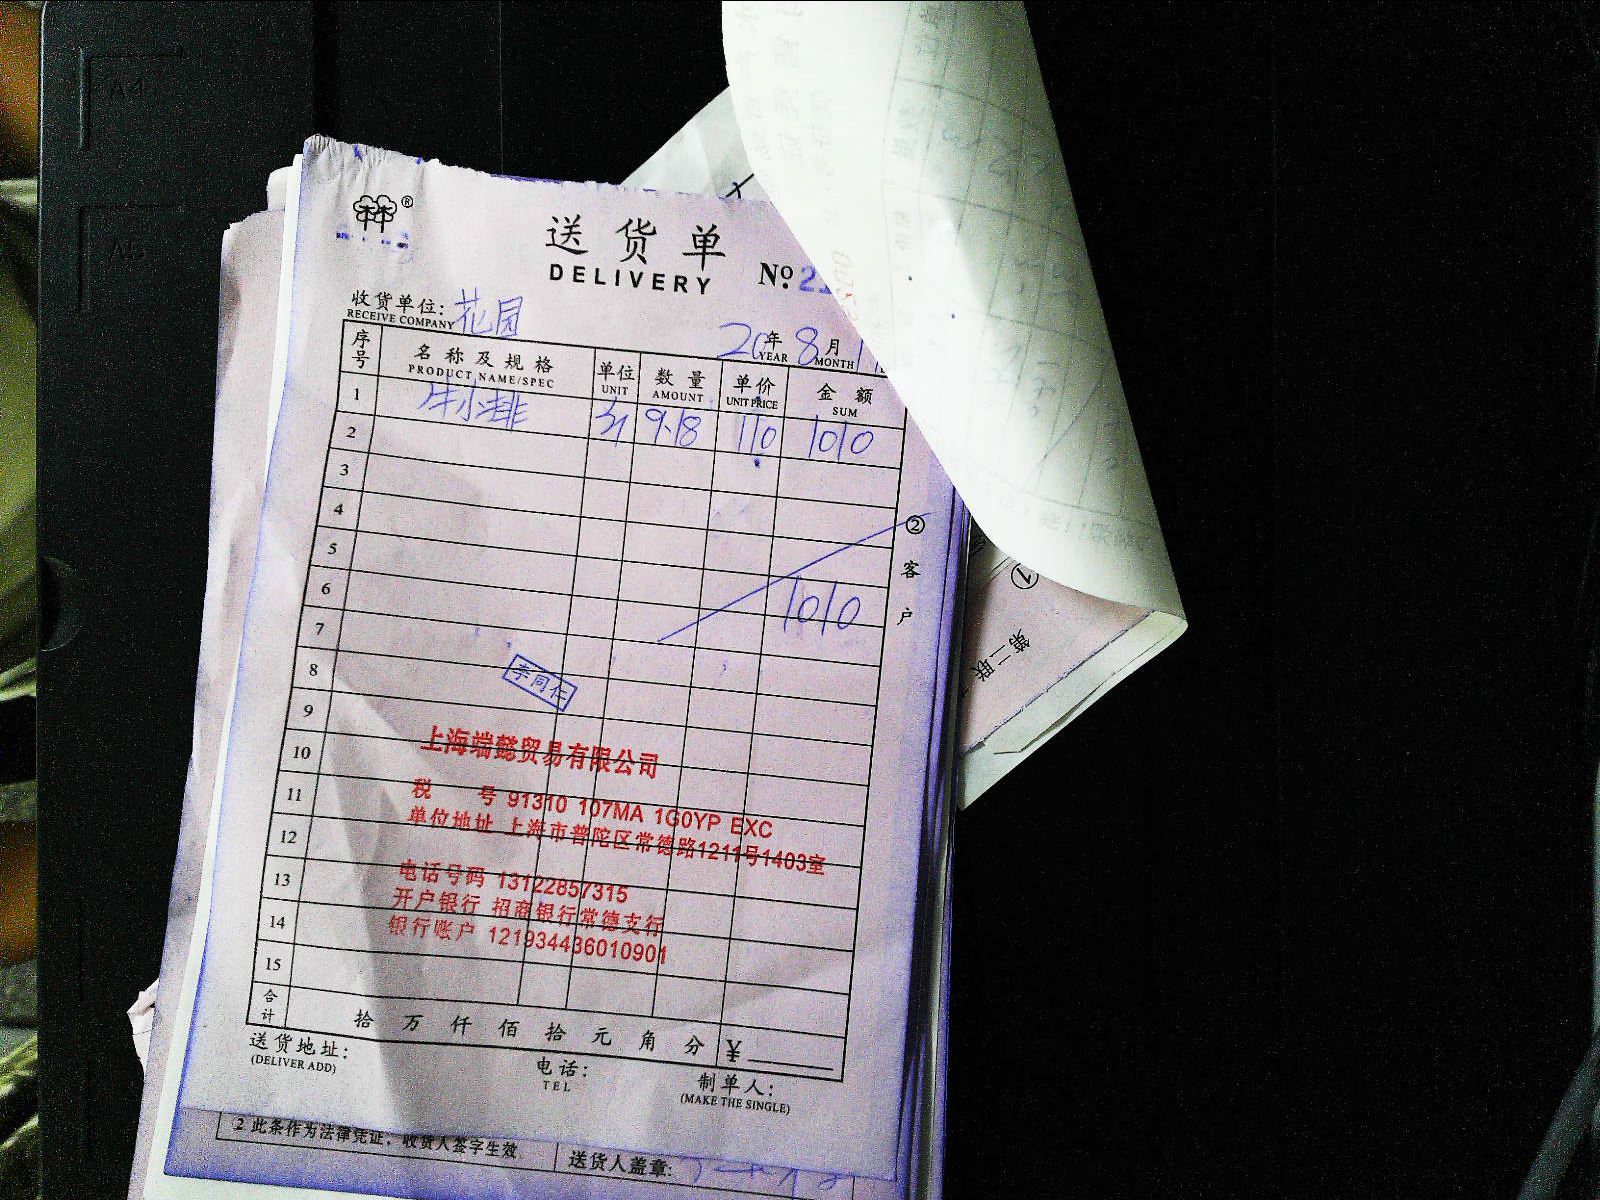 A4
A5
送货单
DELIVERY
№:
收货单位: 花园
RECEIVE COMPANY
20年 8月
YEAR MONTH
序号 名称及规格 单位 数量 单价 金额
PRODUCT NAME/SPEC UNIT AMOUNT UNIT PRICE SUM
1 牛小排 9.18 110 1010
2
3
4
5
6 1010
7
8 李同仁
9
10
11
12
13
14
15
② 客户
上海端懿贸易有限公司
税 号 91310 107MA 1G0YP EXC
单位地址 上海市普陀区常德路1211号1403室
电话号码 13122857315
开户银行 招商银行常德支行
银行账户 121934436010901
合计 拾 万 仟 佰 拾 元 角 分 ¥
送货地址: 电话: 制单人:
(DELIVER ADD) TEL (MAKE THE SINGLE)
2 此条作为法律凭证,收货人签字生效
送货人盖章:
①
第二联